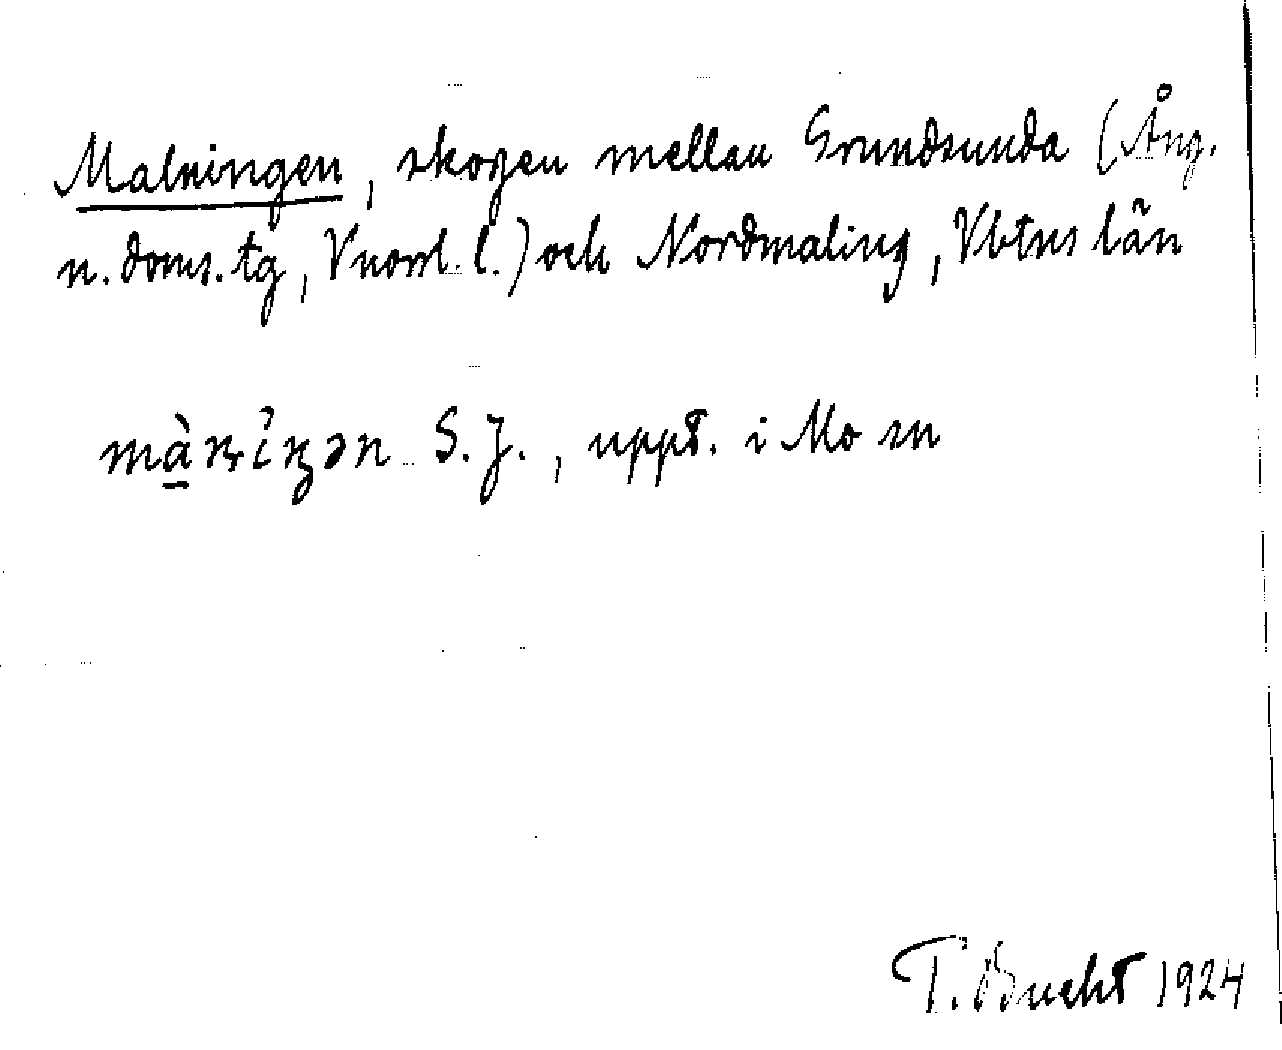 Malningen, skogen mellan Grundsunda (Ång.
n. doms. tg, Vnorrl. l.) och Nordmaling, Vbtns län
mà̱ɳiŋən S.J., uppt. i Mo sn
T. Bucht 1924